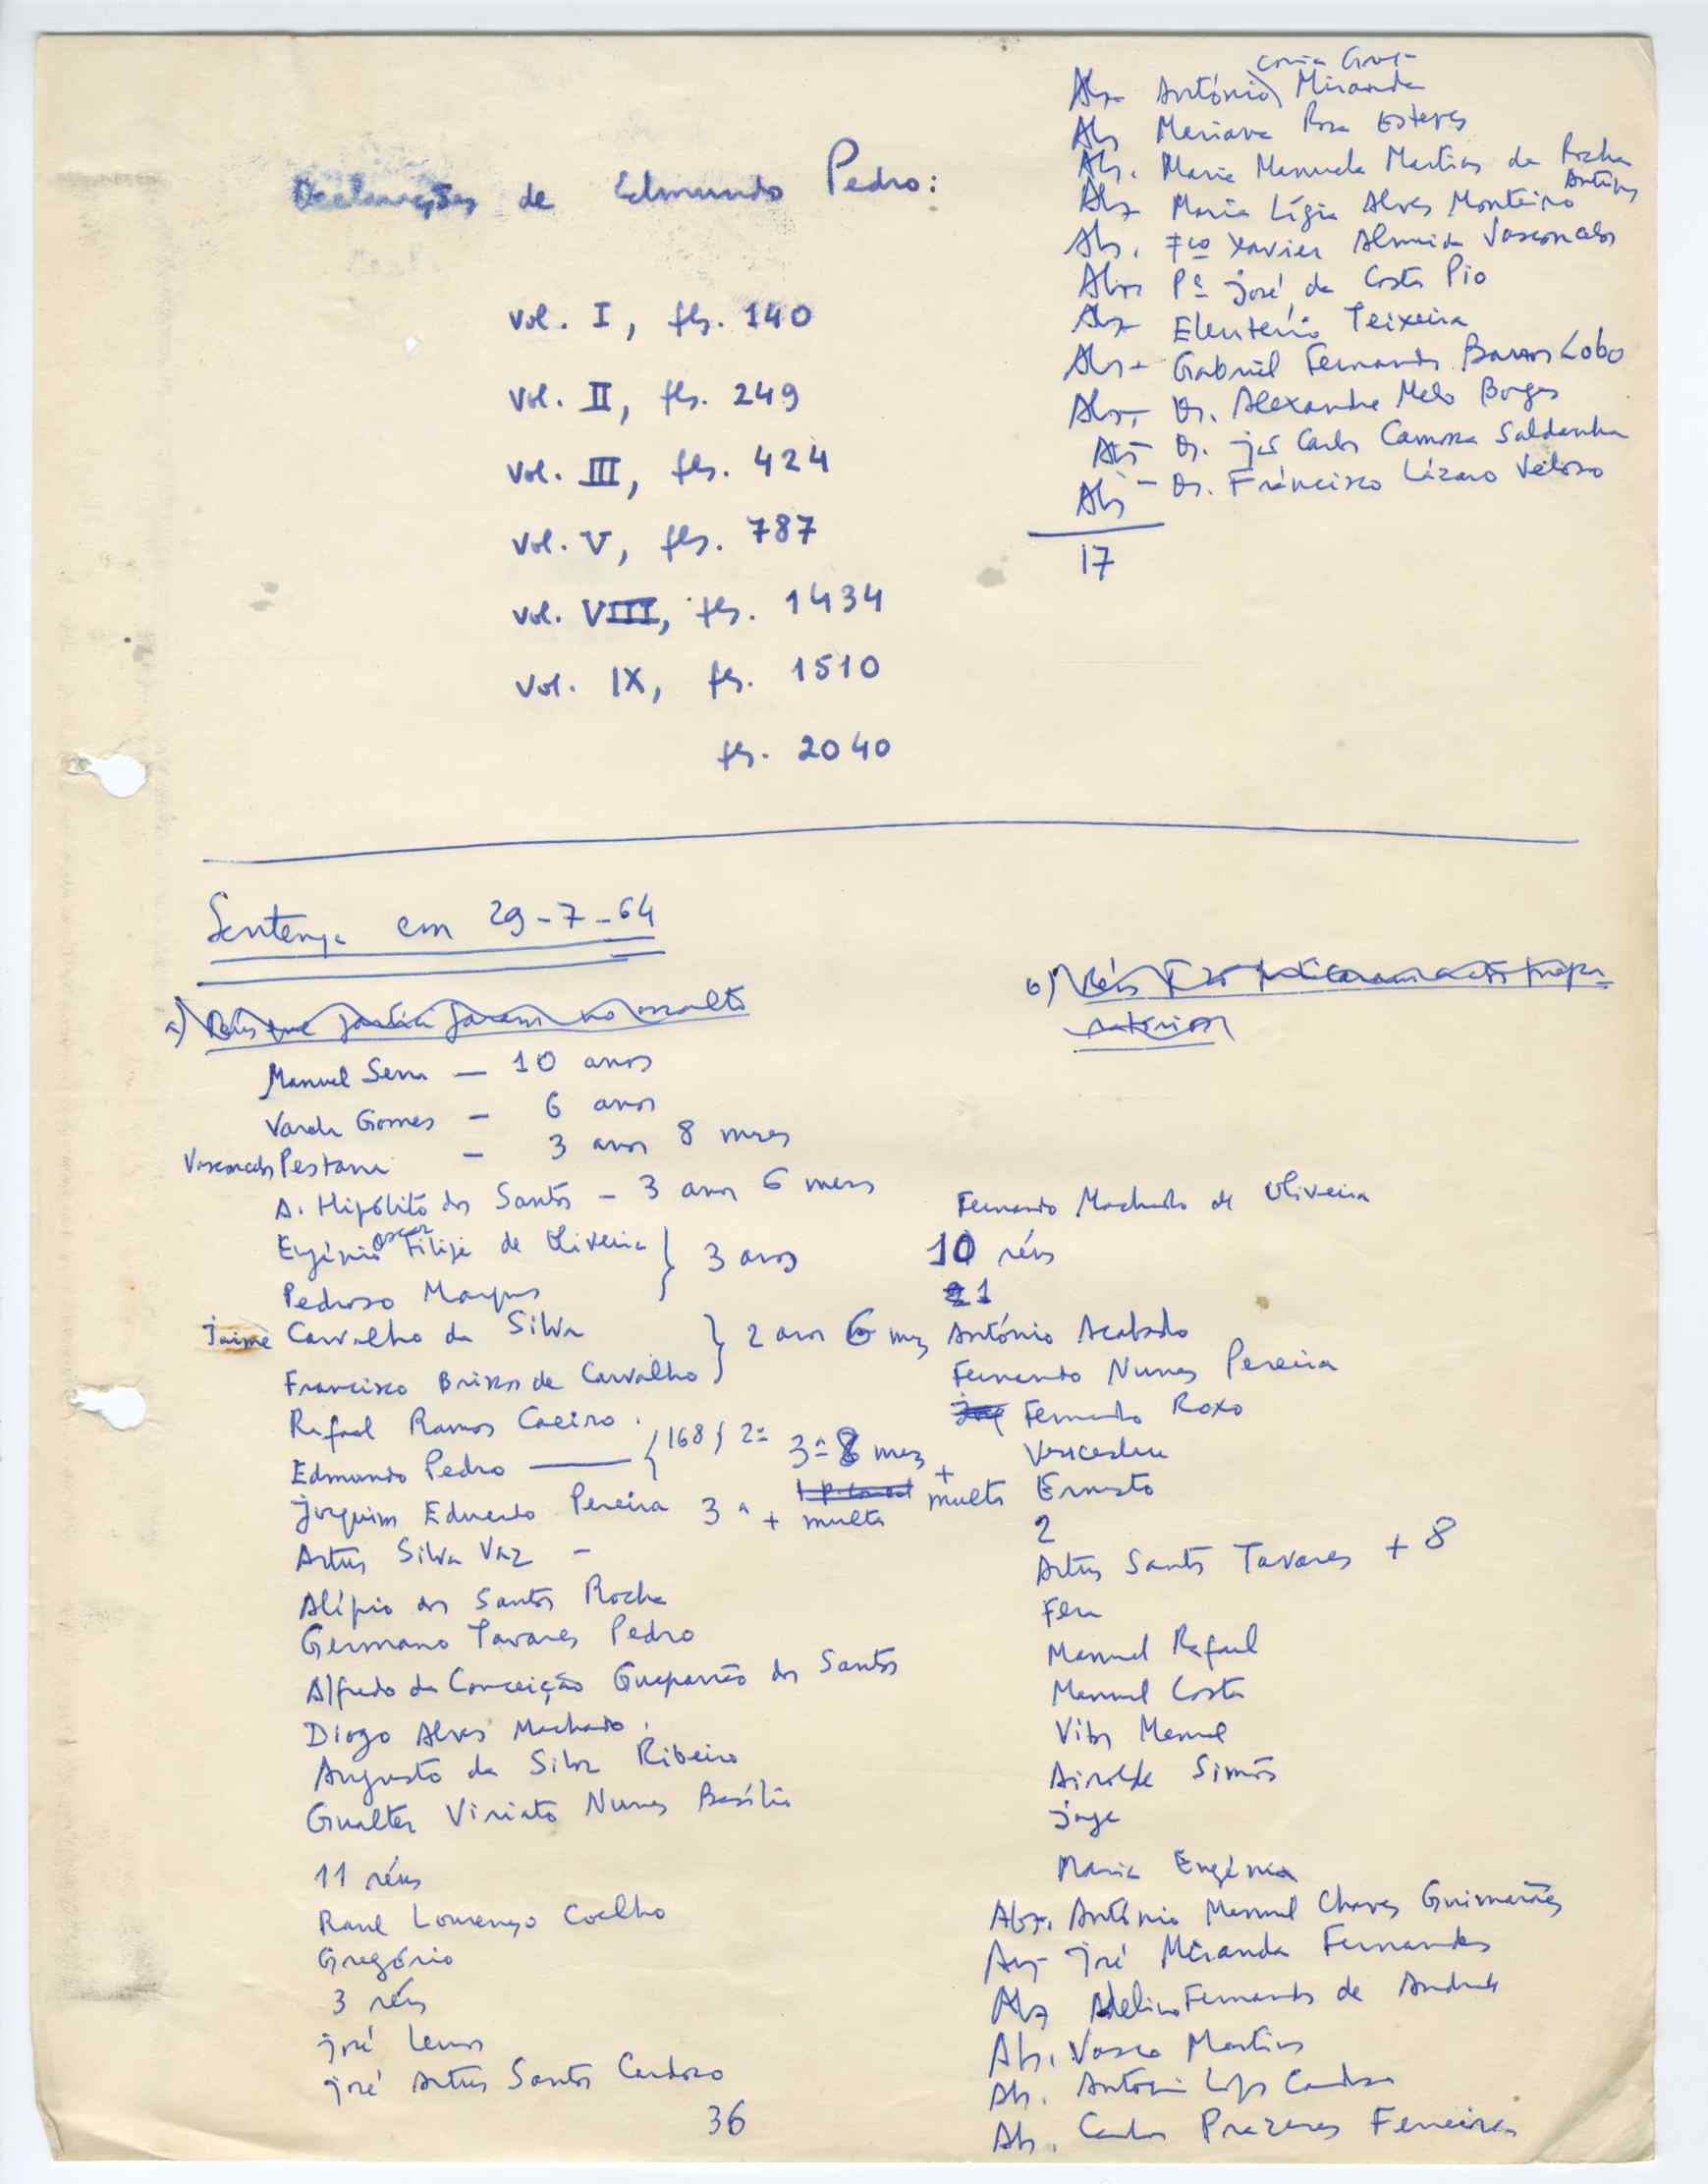 Declarações de Edmundo Pedro:
vol. I, fls. 140
vol. II, fls. 249
vol. III, fls. 424
vol. V, fls. 787
vol. VIII, fls. 1434
vol. IX, fls. 1510
fls. 2040
António Miranda
Abs Mariana Rosa Esteves
Abs. Maria Manuela Martins da Rocha Antunes
Abs Maria Lígia Alves Monteiro
Abs. Fco Xavier Almeida Vasconcelos
Abs Pe José da Costa Pio
Abs Eleutério Teixeira
Abs - Gabriel Fernandes Barros Lobo
Abs - Dr. Alexandre Melo Borges
Abs - Dr. José Carlos Camossa Saldanha
Abs - Dr. Francisco Lázaro Veloso
17
Sentença em 29-7-64
a) Réus que participaram no assalto
Manuel Serra - 10 anos
Varela Gomes - 6 anos
Vasconcelos Pestana - 3 anos 8 meses
A. Hipólito dos Santos - 3 anos 6 meses
Eugénio Oscar Filipe de Oliveira } 3 anos
Pedroso Marques
Jaime Carvalho da Silva } 2 anos 6 meses
Francisco Brissos de Carvalho
Rafael Ramos Caeiro
Edmundo Pedro — 3 a 8 meses + multa
Joaquim Eduardo Pereira 3 a + multa
Artur Silva Vaz -
Alípio dos Santos Rocha
Germano Tavares Pedro
Alfredo da Conceição Guaparrão dos Santos
Diogo Alves Machado
Augusto da Silva Ribeiro
Gualter Viriato Nunes Basílio
11 réus
Raul Lourenço Coelho
Gregório
3 réus
José Lemos
José Artur Santos Cardoso
36
b) Réus
Fernando Machado de Oliveira
10 réus
21
António Acabado
Fernando Nunes Pereira
Fernando Roxo
Venceslau
Ernesto
2
Artur Santos Tavares + 8
Manuel Rafael
Manuel Costa
Vitor Manuel
Airolde Simões
Jorge
Maria Eugénia
Abs. António Manuel Chaves Guimarães
José Miranda Fernandes
Abs Adelino Fernandes de Andrade
Abs. Vasco Martins
Abs. António Lopes Cardoso
Abs. Carlos Prazeres Ferreira